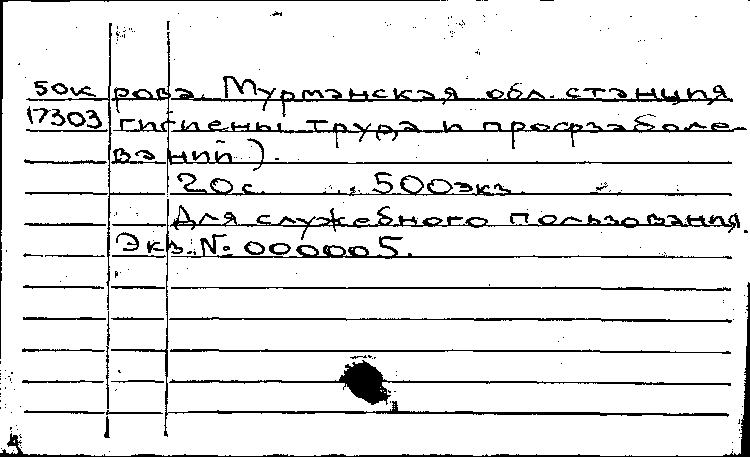 50к рова. Мурманская обл. станция
17303 гигиены труда и профзаболе-
ваний).
20с. 500экз.
Для служебного пользования.
Экз. № 000005.